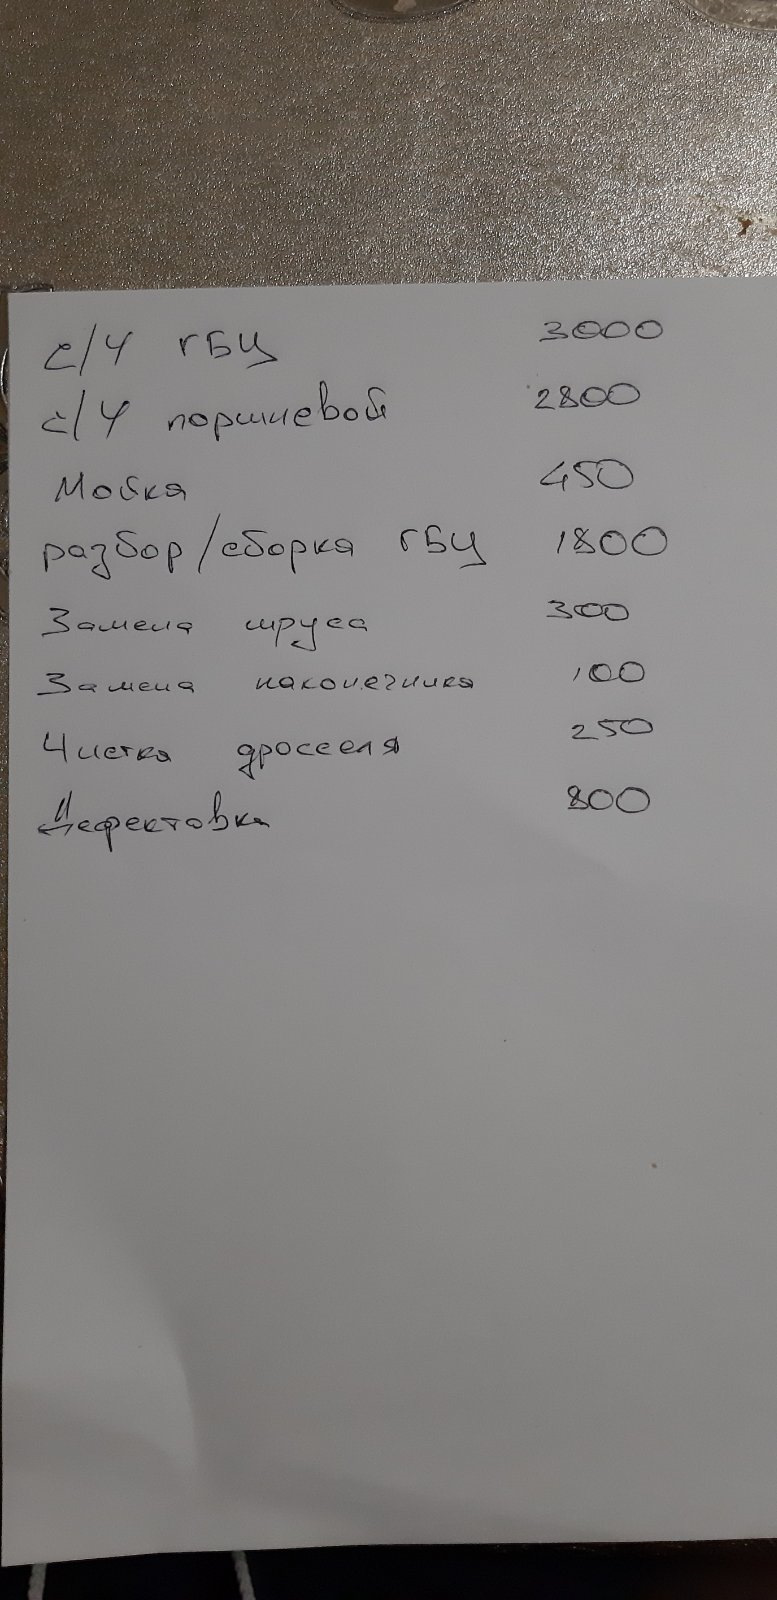 с/у ГБЦ 3000
с/у поршневой 2800
Мойка 450
разбор/сборка ГБЦ 1800
Замена шруса 300
Замена наконечника 100
Чистка дросселя 250
Дефектовка 800